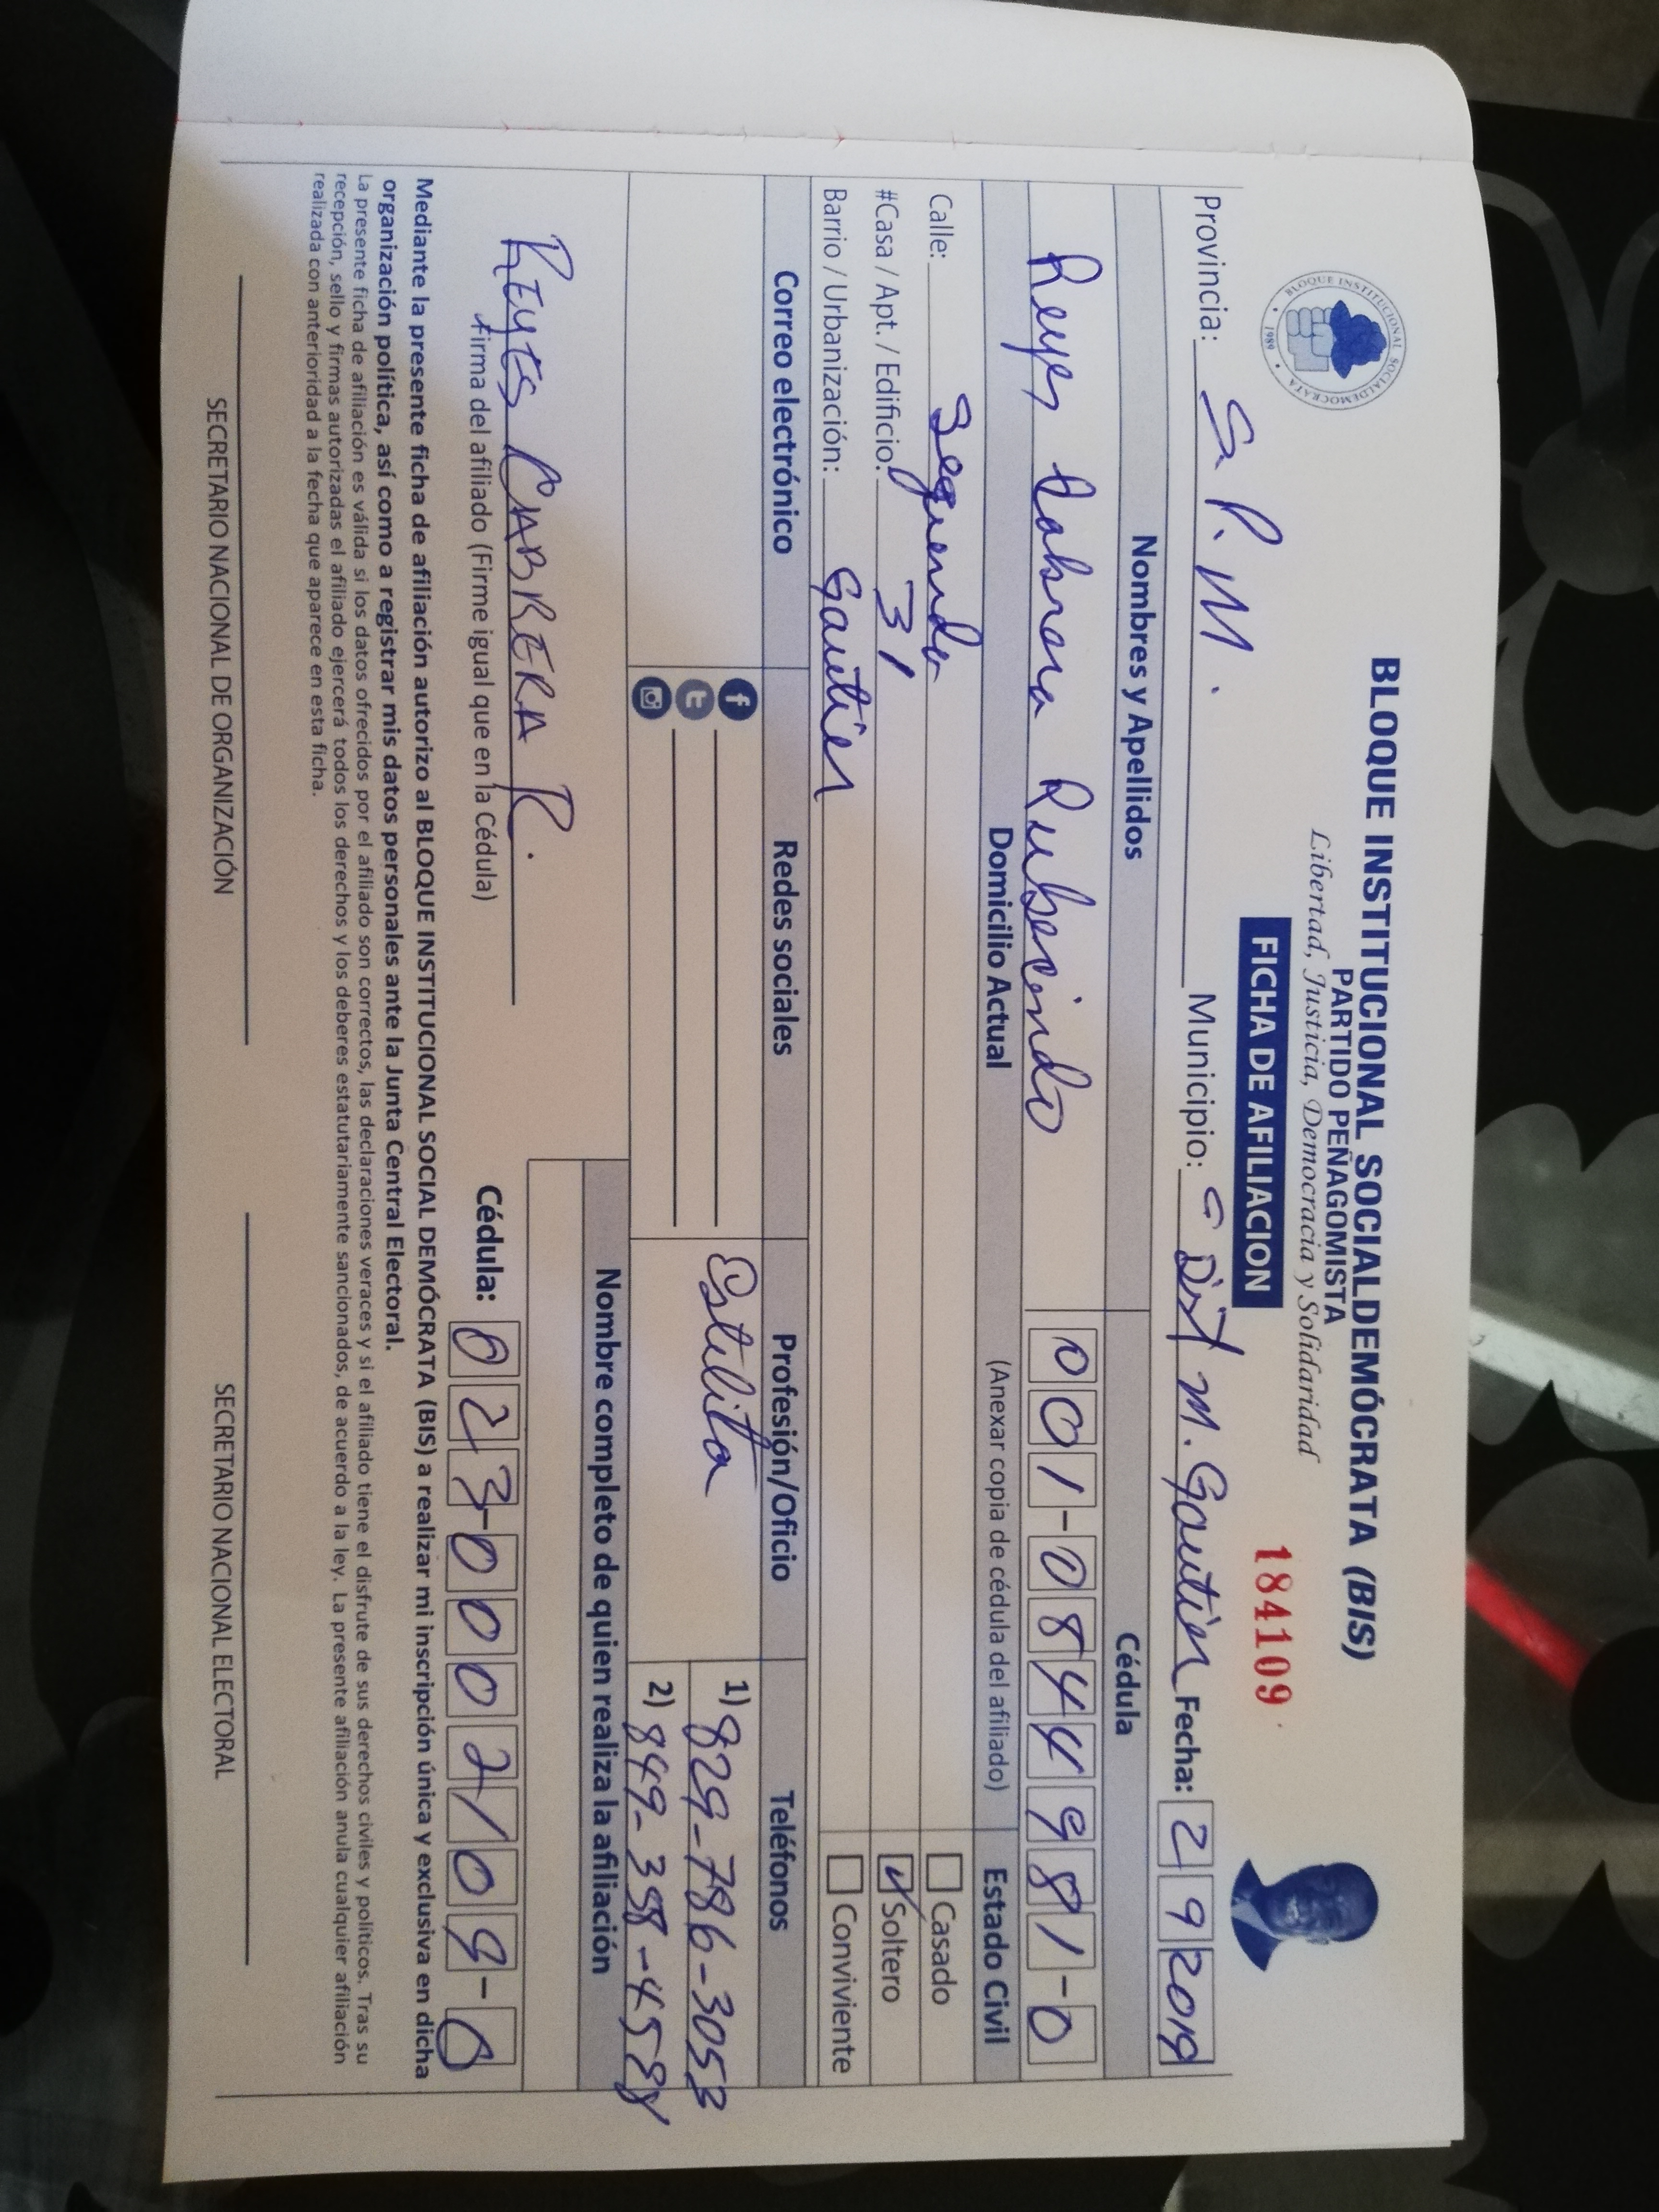 BLOQUE INSTITUCIONAL SOCIALDEMÓCRATA (BIS)
PARTIDO PEÑAGOMISTA
Libertad, Justicia, Democracia y Solidaridad
BLOQUE INSTITUCIONAL SOCIALDEMOCRATA • 1989 •
FICHA DE AFILIACION
184109
Provincia: S. P. M. Municipio: Dist M. Gautier Fecha: 2 9 2019
Nombres y Apellidos Cédula
Reyes Cabrera Rubecindo 001-0844981-0
Domicilio Actual (Anexar copia de cédula del afiliado) Estado Civil
Calle: Segunda Casado
#Casa / Apt. / Edificio: 31 Soltero
Barrio / Urbanización: Gautier Conviviente
Correo electrónico Redes sociales Profesión/Oficio Teléfonos
Estilita 1) 829-786-3053
2) 849-358-4588
Nombre completo de quien realiza la afiliación
REYES CABRERA R.
Firma del afiliado (Firme igual que en la Cédula)
Cédula: 023-0002109-
Mediante la presente ficha de afiliación autorizo al BLOQUE INSTITUCIONAL SOCIAL DEMÓCRATA (BIS) a realizar mi inscripción única y exclusiva en dicha
organización política, así como a registrar mis datos personales ante la Junta Central Electoral.
La presente ficha de afiliación es válida si los datos ofrecidos por el afiliado son correctos, las declaraciones veraces y si el afiliado tiene el disfrute de sus derechos civiles y políticos. Tras su
recepción, sello y firmas autorizadas el afiliado ejercerá todos los derechos y los deberes estatutariamente sancionados, de acuerdo a la ley. La presente afiliación anula cualquier afiliación
realizada con anterioridad a la fecha que aparece en esta ficha.
SECRETARIO NACIONAL DE ORGANIZACIÓN SECRETARIO NACIONAL ELECTORAL